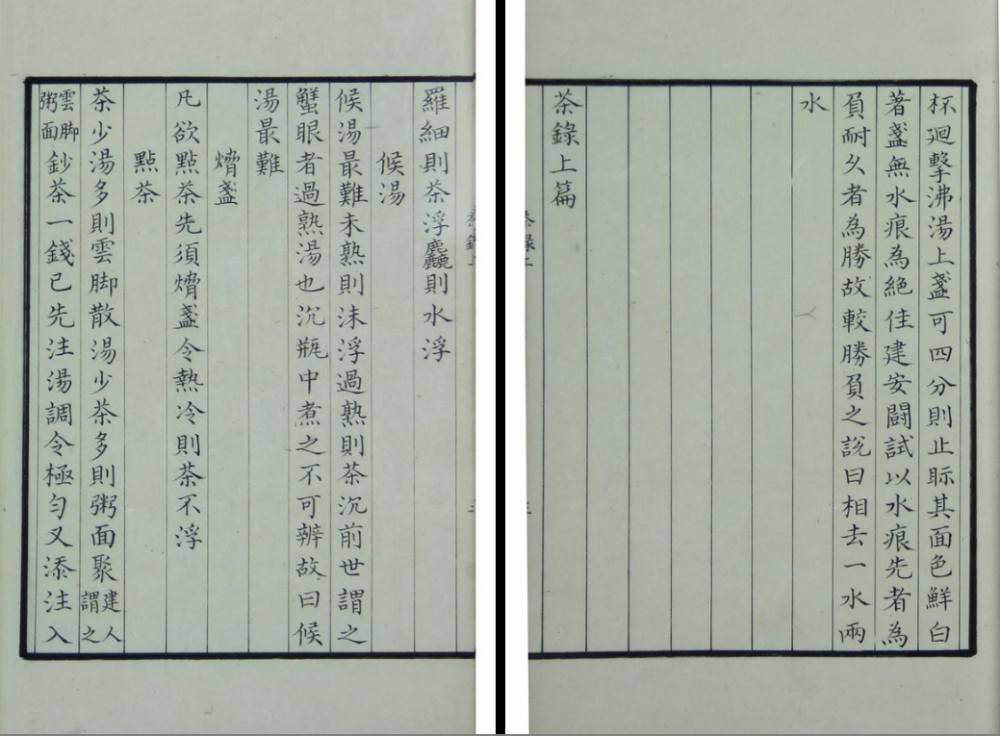 羅細則茶浮麤則水浮
候湯
候湯最難未熟則沫浮過熟則茶沉前世謂之
蟹眼者過熟湯也沉瓶中煮之不可辨故曰候
湯最難
熁盞
凡欲點茶先須熁盞令熱冷則茶不浮
點茶
茶少湯多則雲脚散湯少茶多則粥面聚建人謂之
雲脚粥面鈔茶一錢已先注湯調令極匀又添注入
杯廻擊沸湯上盞可四分則止眎其面色鮮白
著盞無水痕為絶佳建安鬭試以水痕先者為
負耐乆者為勝故較勝負之說曰相去一水兩
水
茶錄上篇